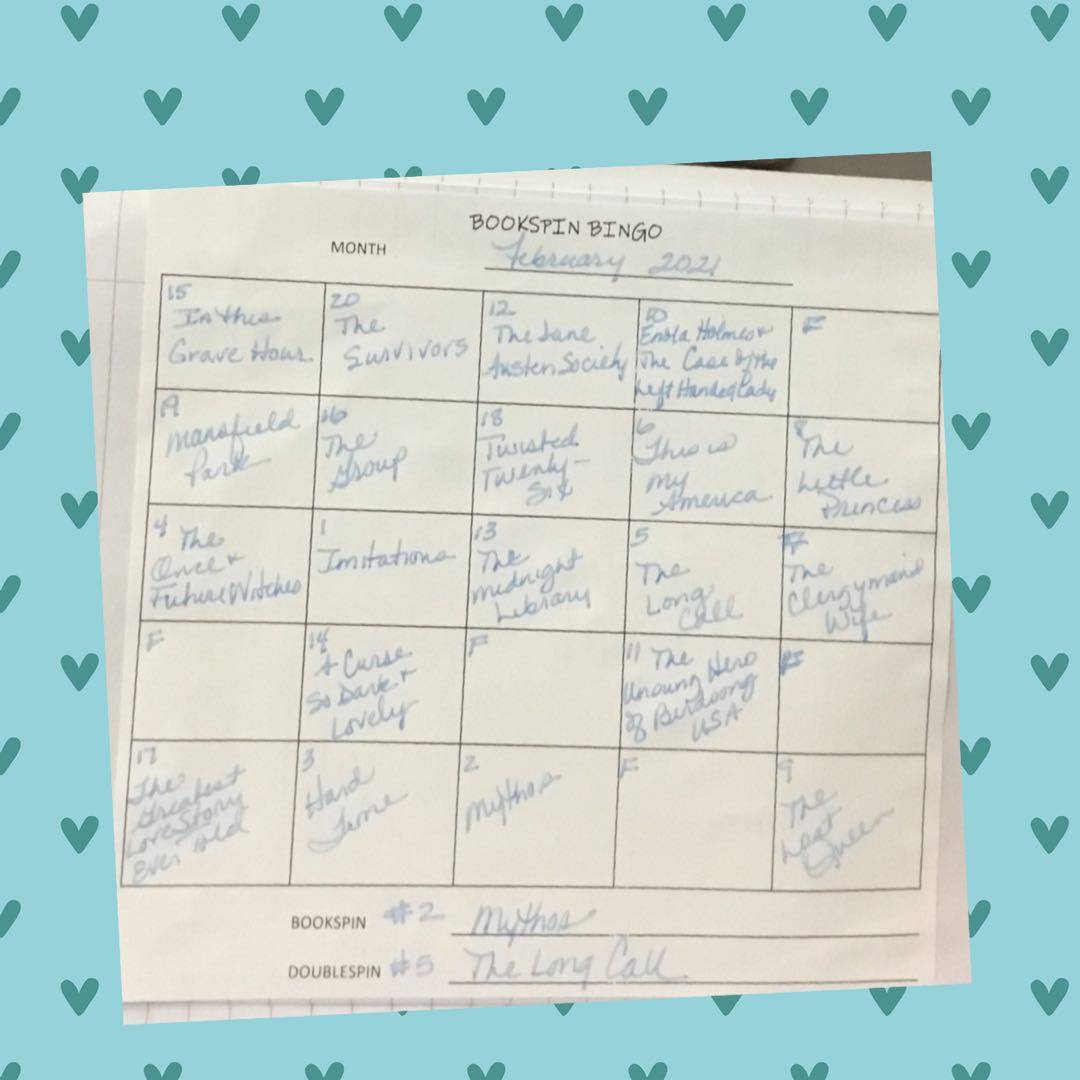 BOOKSPIN BINGO
MONTH February 2021
15
In this
Grave Hour
20
The
Survivors
12
The Jane
Austen Society
10
Enola Holmes +
The Case of the
Left Handed Lady
F
19
Mansfield
Park
16
The
Group
18
Twisted
Twenty-
Six
6
This is
My
America
8
The
Little
Princess
4 The
Once +
Future Witches
1
Imitations
13
The
Midnight
Library
5
The
Long
Call
7
The
Clergyman's
Wife
F
14
A Curse
So Dark +
Lovely
F
11 The
Unsung Hero
of Birdsong
USA
F
17
The
Greatest
Love Story
Ever Told
3
Hard
Time
2
Mythos
F
9
The
Last
Queen
BOOKSPIN #2 Mythos
DOUBLESPIN #5 The Long Call